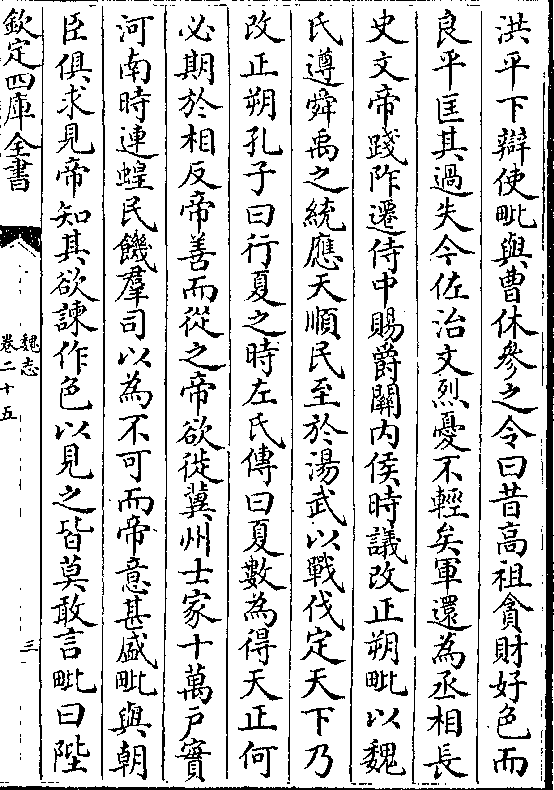 洪平下辯使毗與曹休參之令曰昔高祖貪財好色而
良平匡其過失今佐治文烈憂不輕矣軍還為丞相長
史文帝踐阼遷侍中賜爵關内侯時議改正朔毗以魏
氏遵舜禹之統應天順民至於湯武以戰伐定天下乃
改正朔孔子曰行夏之時左氏傳曰夏數為得天正何
必期於相反帝善而從之帝欲徙冀州士家十萬戸實
河南時連蝗民饑羣司以為不可而帝意甚盛毗與朝
臣俱求見帝知其欲諫作色以見之皆莫敢言毗曰陛
欽定四庫全書
魏志
卷二十五
三